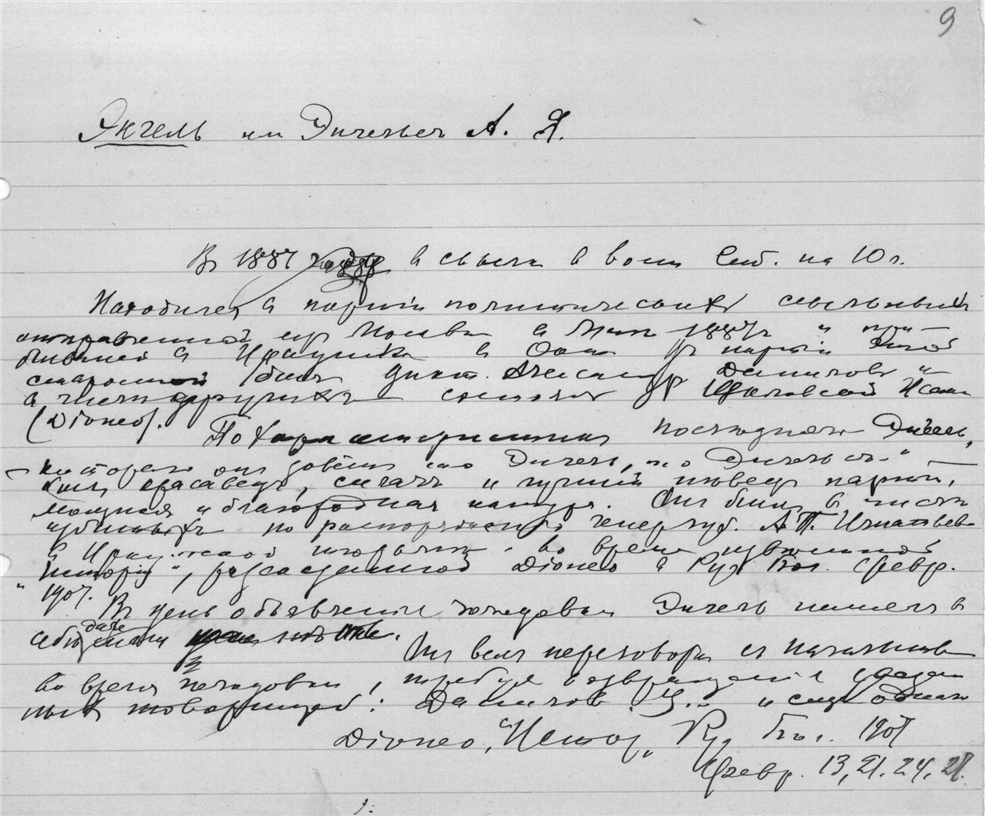 9
Энгель или Энгельс А. Я.
В 1887 году в ссылке в вост. Сиб. на 10 л.
Находился в партии политических ссыльных
отправленной из Москвы в Мае 1887 г. и при-
бывшей в Иркутск в партии этой
старостой был Александр Данилов и
в числе других состоял Шкловский Исаак
(Дионео).
По характеристике последнего Энгель,
которого он зовёт то Энгель, то Энгельс"—
был красавец, силач и лучший певец партии,
мощная и благородная натура. Он был в числе
по распоряжению генер. губ. А. П. Игнатьева
в Иркутской тюрьме во время
"истории", рассказанной Дионео в Рус. Бог. Февр.
1907.
В день объявления голодовки Энгель нашел в
себе даже силы петь.
Он вел переговоры с начальник
во время голодовки, требуя возвращения
ных товарищей: Данилов и еще одного
Дионео, "Истор." Рус. Бог. 1907
Февр. 13, 21, 24, 27.